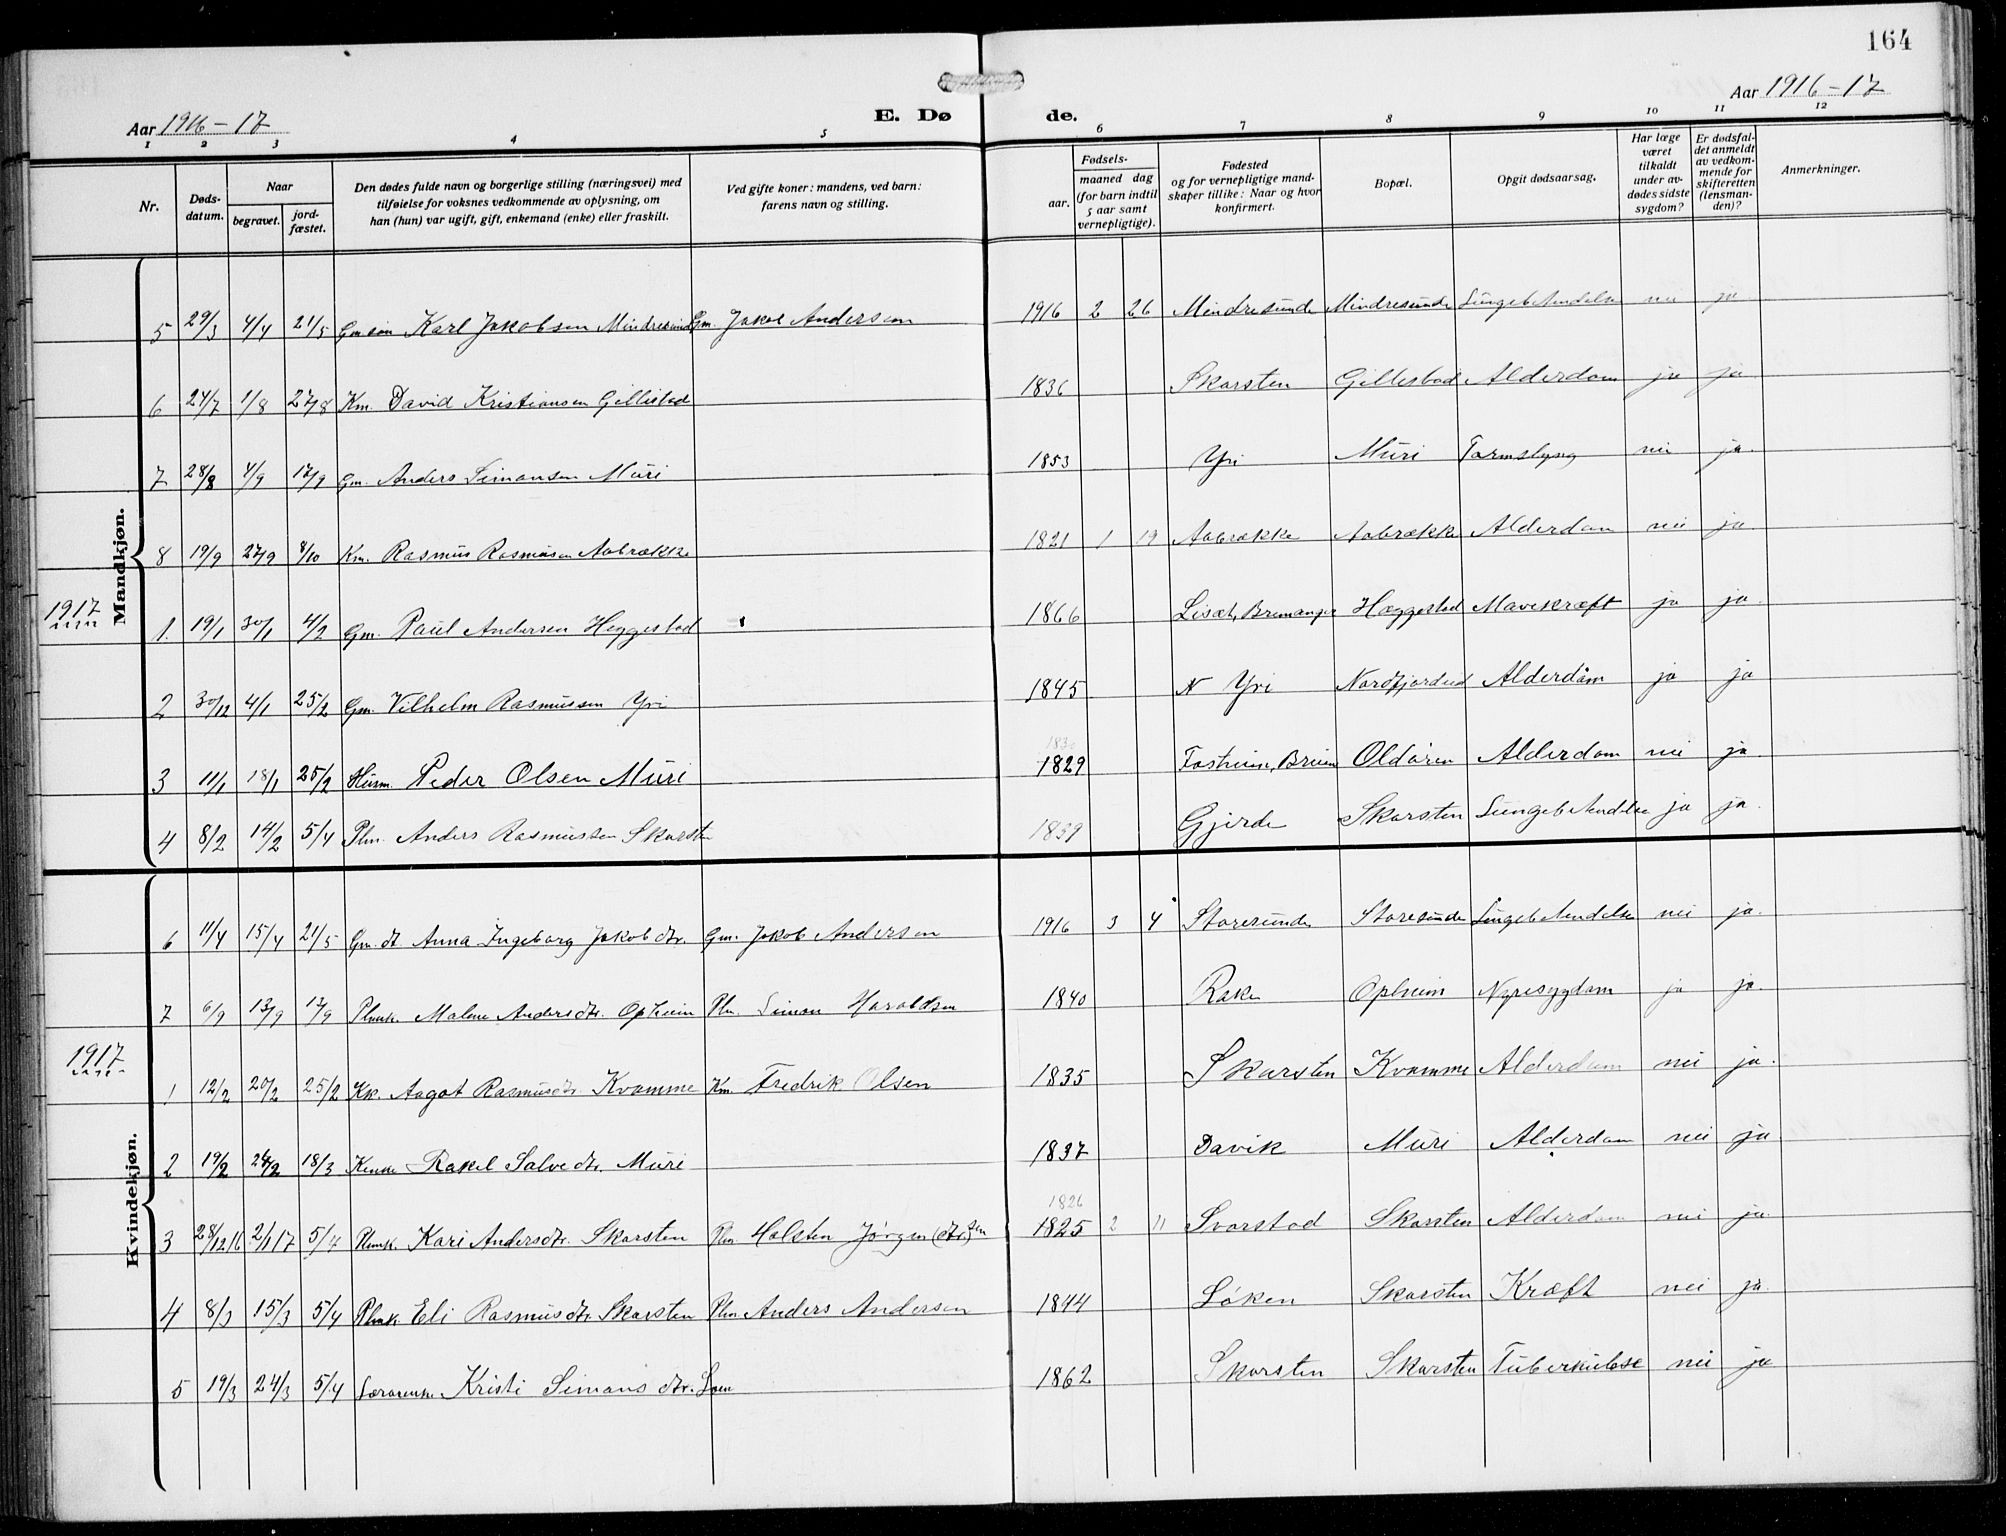 164
Aar 1916-17
Aar 1916-17
E. Dø de.
1 2 3 4 5 6 7 8 9 10 11 12
Nr.
Døds-datum.
Naar
begravet.
jord-fæstet.
Den dødes fulde navn og borgerlige stilling (næringsvei) med tilføielse for voksnes vedkommende av oplysning, om han (hun) var ugift, gift, enkemand (enke) eller fraskilt.
Ved gifte koner: mandens, ved barn: farens navn og stilling.
Fødsels-
aar.
maaned dag
(for barn indtil 5 aar samt vernepligtige).
Fødested og for vernepligtige mandskaper tillike: Naar og hvor konfirmert.
Bopæl.
Opgit dødsaarsag.
Har læge været tilkaldt under avdødes sidste sygdom?
Er dødsfaldet anmeldt av vedkommende for skifteretten (lensmanden)?
Anmerkninger.
Mandkjøn.
5 29/3 4/4 21/5 Gm søn Karl Jakobsen Mindresunde Gm. Jakob Andersen 1916 2 26 Mindresunde Mindresunde Lungebetændelse nei ja
6 24/7 1/8 27/8 Km. David Kristiansen Gillestad 1836 Skarsten Gillestad Alderdom ja ja
7 28/8 4/9 17/9 Gm. Anders Simonsen Muri 1853 Yri Muri Tarmslyng nei ja.
8 19/9 27/9 8/10 Km. Rasmus Rasmusen Aabrække 1821 1 19 Aabrække Aabrække Alderdom nei ja.
1917
1. 19/1 30/1 4/2 Gm. Paul Andersen Heggestad 1866 Lisæt, Bremanger Hæggestad Mavekræft ja ja.
2 30/12 4/1 25/2 Gm. Vilhelm Rasmussen Yri 1845 N Yri Nordfjordeid Alderdom ja ja
3 11/1 18/1 25/2 Husm. Peder Olsen Muri 1830 1829 Fosheim, Breim Oldøren Alderdom nei ja
4 8/2 14/2 5/4 Plm. Anders Rasmussen Skarsten 1839 Gjerde Skarsten Lungebetændelse ja ja.
Kvindekjøn.
6 11/4 15/4 21/5 Gm. dt. Anna Ingeborg Jakobdtr. Gm. Jakob Andersen 1916 3 4 Storesunde Storesunde Lungebetændelse nei ja.
7 6/9 13/9 17/9 Plmk. Malene Andersdtr. Opheim Plm. Simon Haraldsen 1840 Rake Opheim Nyresygdom ja ja.
1917
1 12/2 20/2 25/2 Kk. Aagot Rasmusdtr. Kvamme Km. Fredrik Olsen 1835 Skarsten Kvamme Alderdom nei ja.
2 19/2 24/2 18/3 Kenke Rakel Salvedtr. Muri 1837 Davik Muri Alderdom nei ja
3 28/12 16 2/1 17 5/4 Plmk. Kari Andersdtr. Skarsten Plm Halsten Jørgen(dtr.)sen 1826 1825 2 11 Svarstad Skarsten Alderdom nei ja
4 8/3 15/3 5/4 Plmk. Eli Rasmusdtr. Skarsten Plm Anders Andersen 1844 Løken Skarsten Kræft nei ja.
5 19/3 24/3 5/4 Lærerenke Kristi Simonsdtr. Loen 1862 Skarsten Skarsten Tuberkulose nei ja